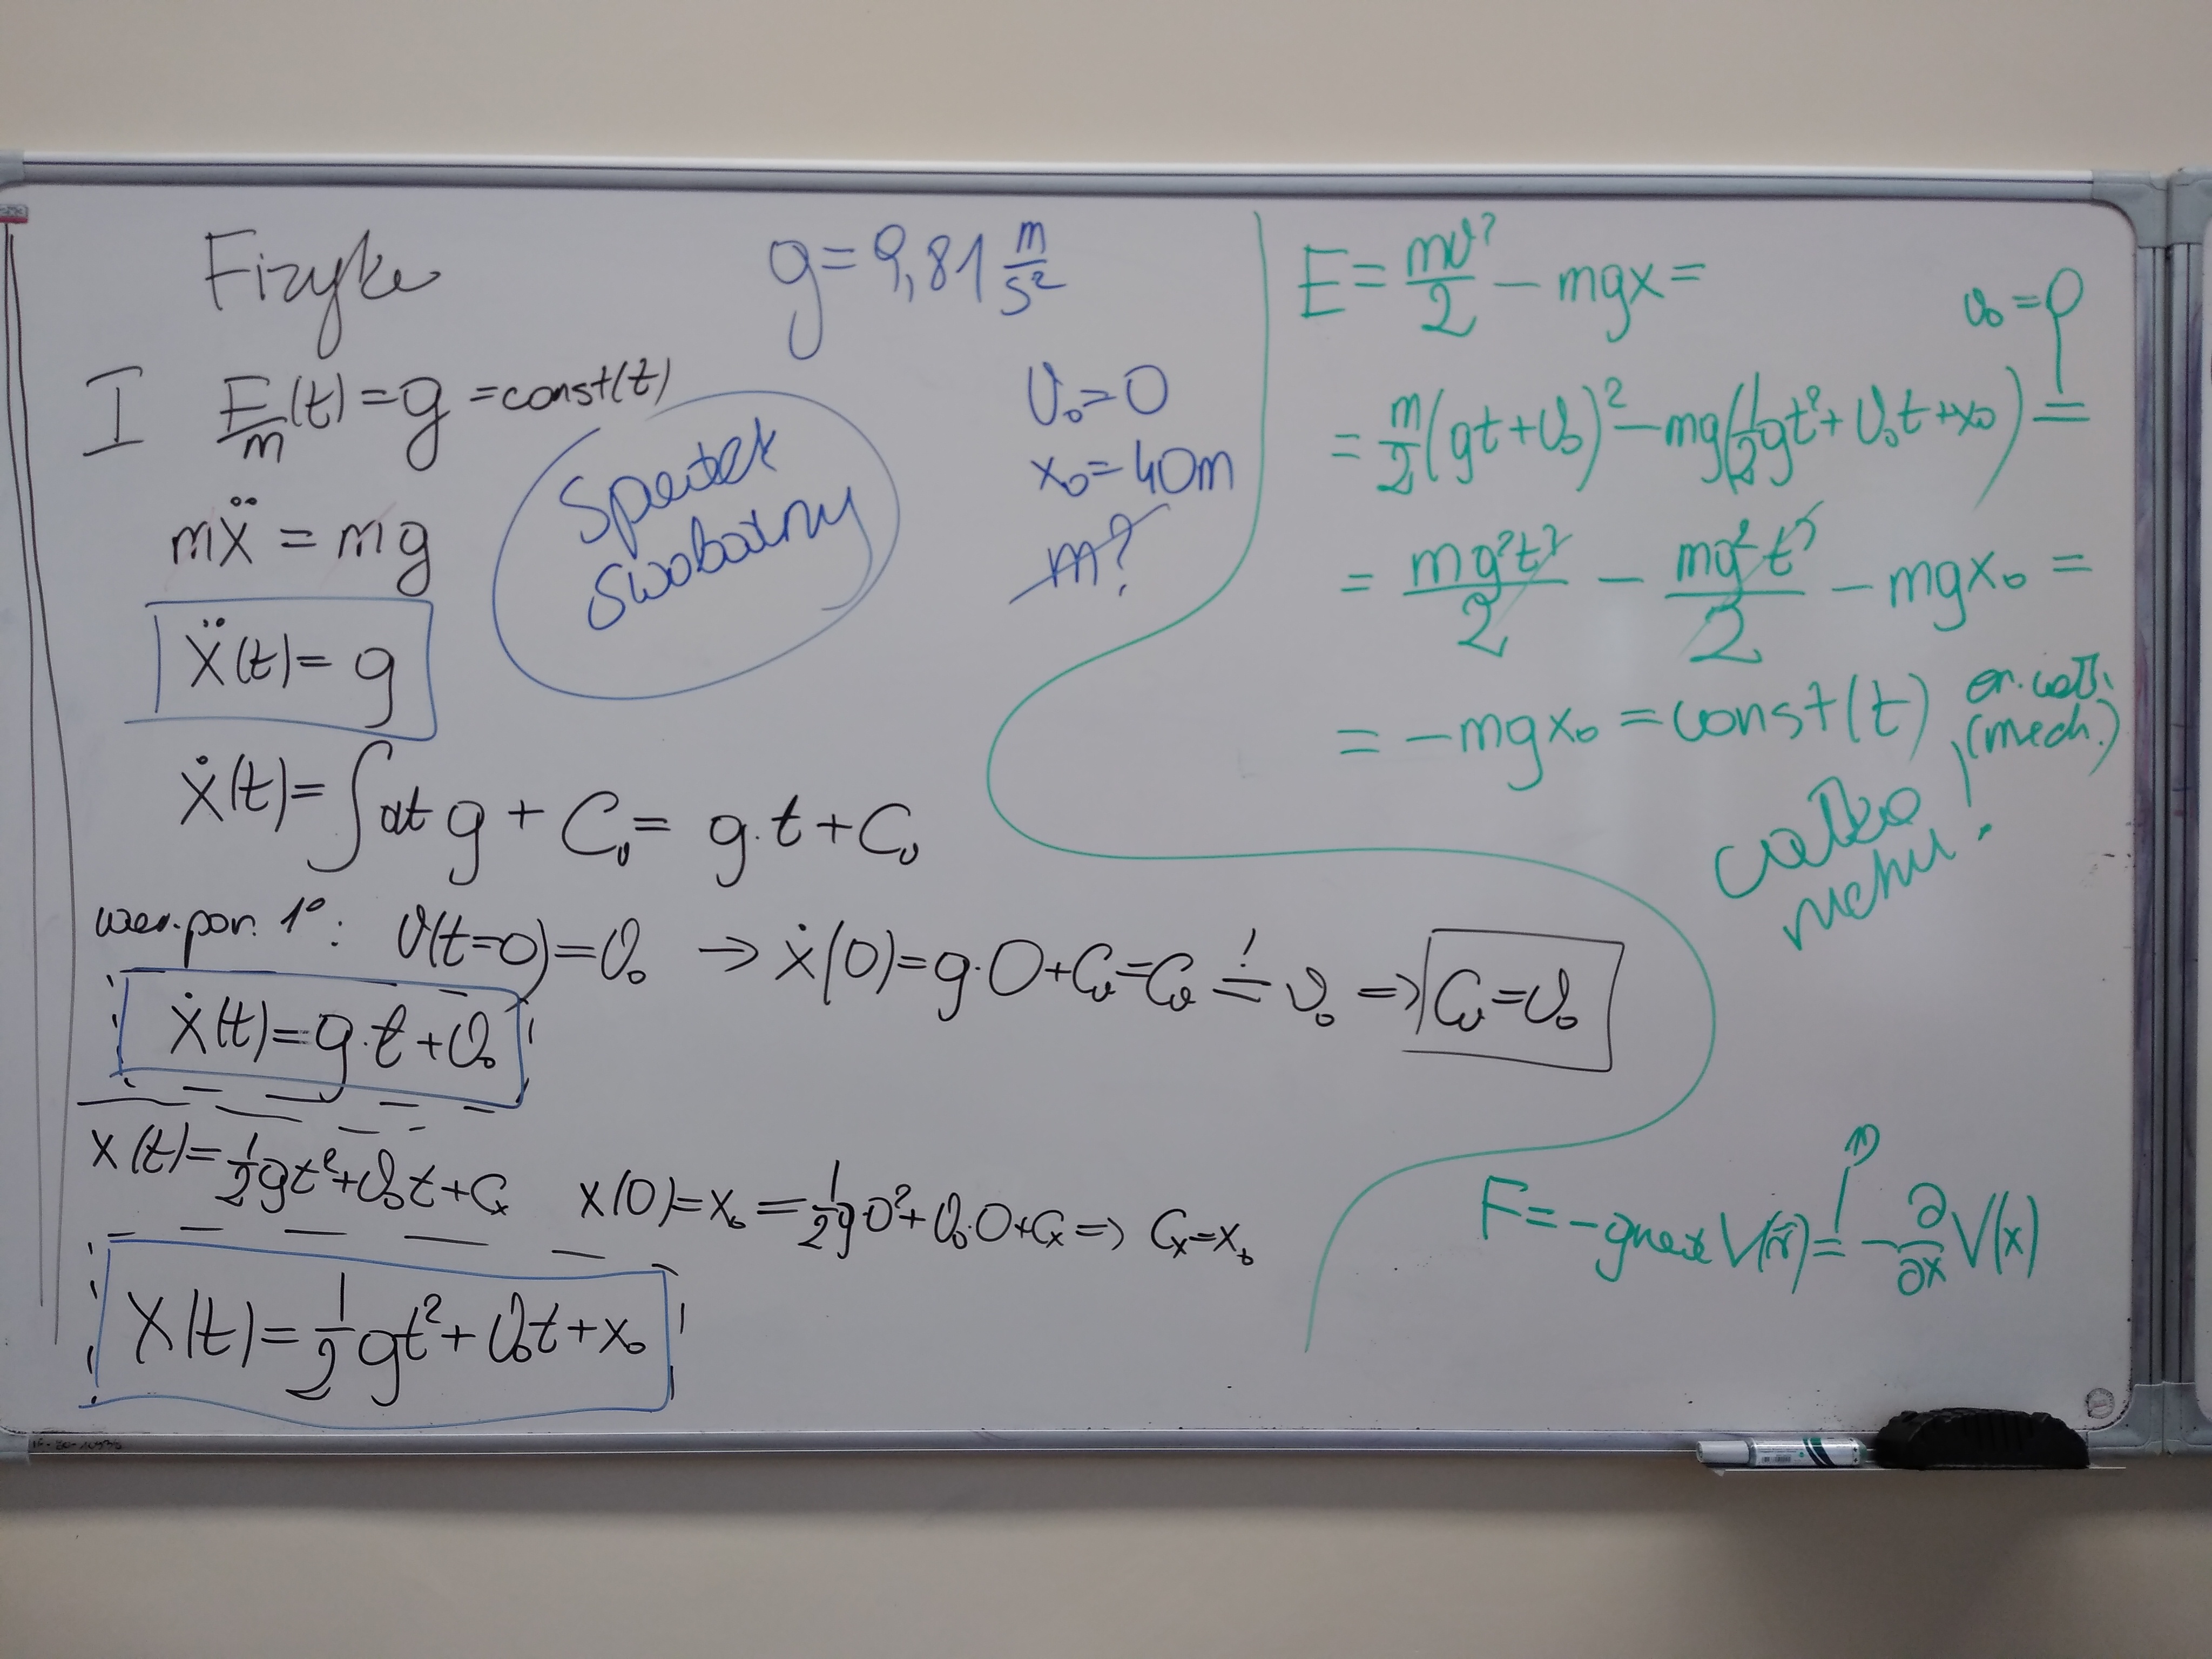 Fizyka
g = 9,81 m/s²
I F/m (t) = g = const(t)
Spadek
swobodny
v₀ = 0
x₀ = 40m
m?
mẍ = mg
ẍ(t) = g
ẋ(t) = ∫dt g + Cᵥ = g·t + Cᵥ
war. pocz. 1°: v(t=0) = v₀ → ẋ(0) = g·0 + Cᵥ = Cᵥ =! v₀ ⇒ Cᵥ = v₀
ẋ(t) = g·t + v₀
x(t) = 1/2 gt² + v₀t + Cₓ x(0) = x₀ = 1/2 g·0² + v₀·0 + Cₓ ⇒ Cₓ = x₀
x(t) = 1/2 gt² + v₀t + x₀
E = mv²/2 − mgx =
v₀ = 0
= m/2 (gt + v₀)² − mg(1/2 gt² + v₀t + x₀) =
= mg²t²/2 − mg²t²/2 − mgx₀ =
= −mgx₀ = const(t) en. całk.
(mech.)
całka
ruchu!
1D
F = −grad V(r⃗) = −∂/∂x V(x)